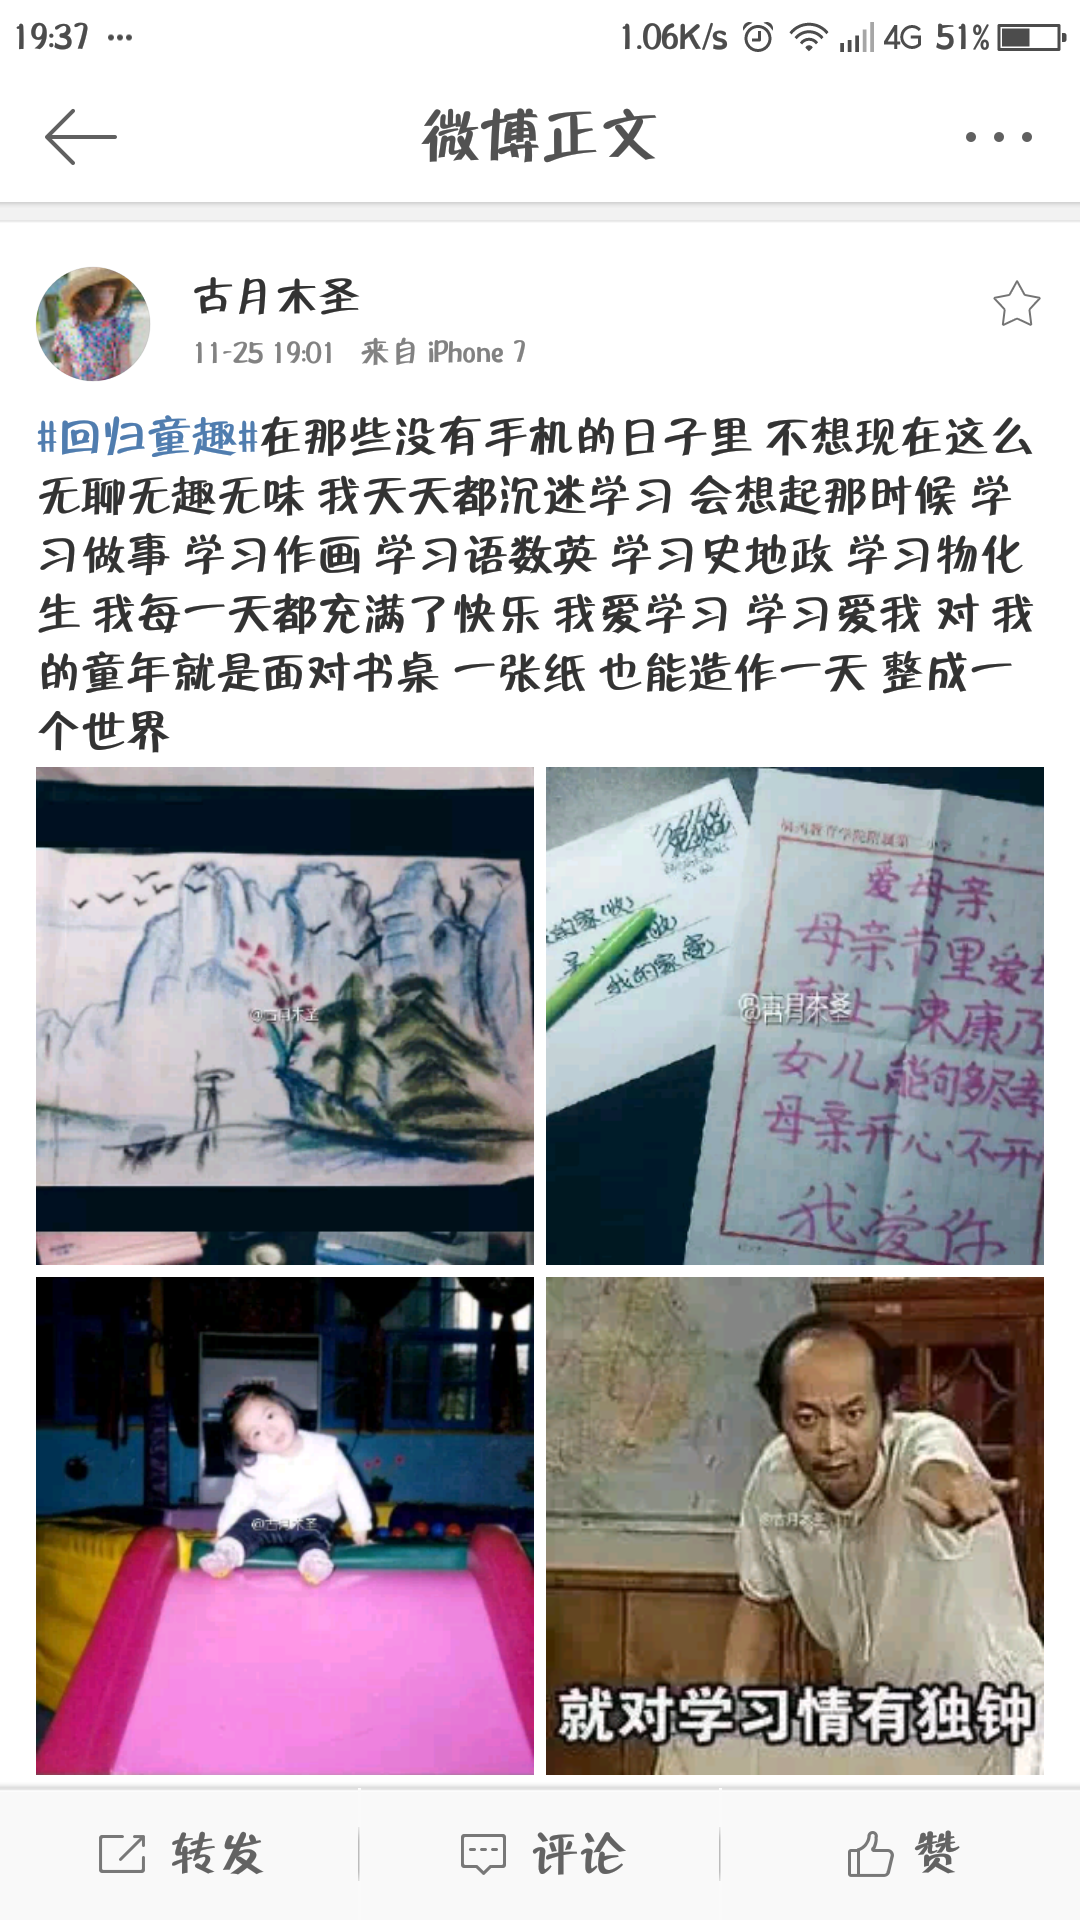 19:37 ...
1.06K/s 4G 51%
微博正文
古月木圣
11-25 19:01 来自 iPhone 7
#回归童趣#在那些没有手机的日子里 不想现在这么
无聊无趣无味 我天天都沉迷学习 会想起那时候 学
习做事 学习作画 学习语数英 学习史地政 学习物化
生 我每一天都充满了快乐 我爱学习 学习爱我 对 我
的童年就是面对书桌 一张纸 也能造作一天 整成一
个世界
@古月木圣
的家(收)
我的家(寄)
教育学院附属第二小学
爱母亲
母亲节里爱
上一束康乃
女儿能够多尽孝
母亲开心不开
我爱你
@古月木圣
@古月木圣
@古月木圣
就对学习情有独钟
转发 评论 赞